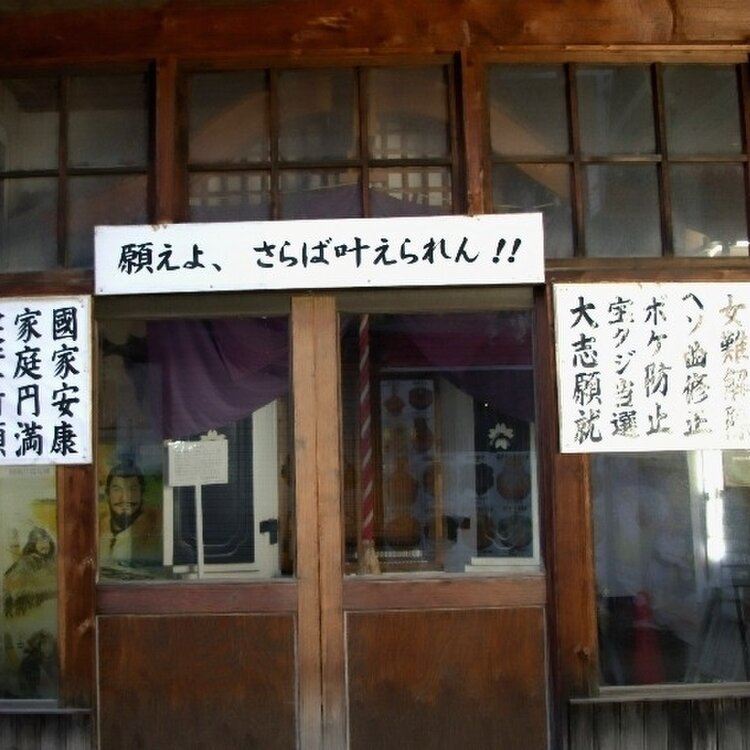 願えよ、さらば叶えられん!!
女難解除
ヘソ曲修正
ボケ防止
宝クジ当選
大志願就
國家安康
家庭円満